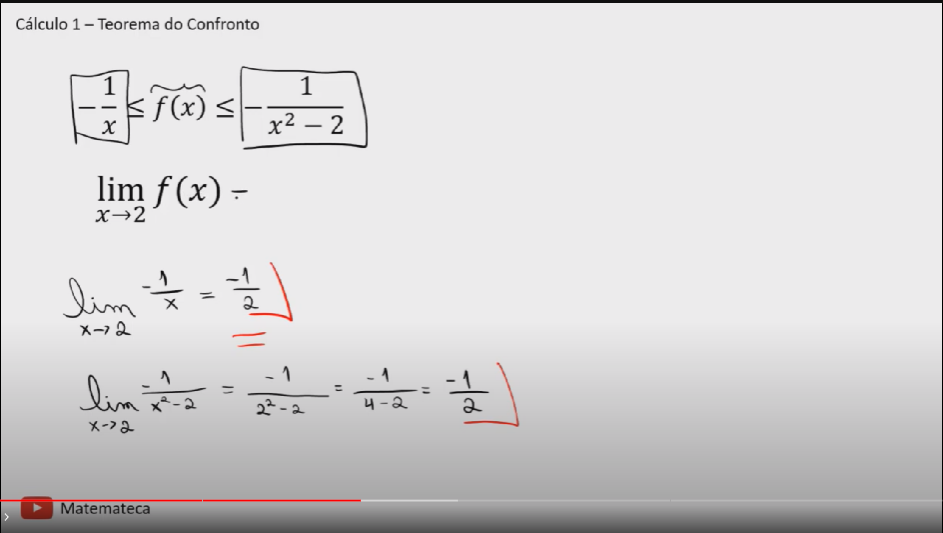 Cálculo 1 – Teorema do Confronto
−1/x ≤ f(x) ≤ −1/(x² − 2)
lim x→2 f(x) =
lim x→2 -1/x = -1/2
=
lim x→2 -1/(x²-2) = -1/(2²-2) = -1/(4-2) = -1/2
Matemateca